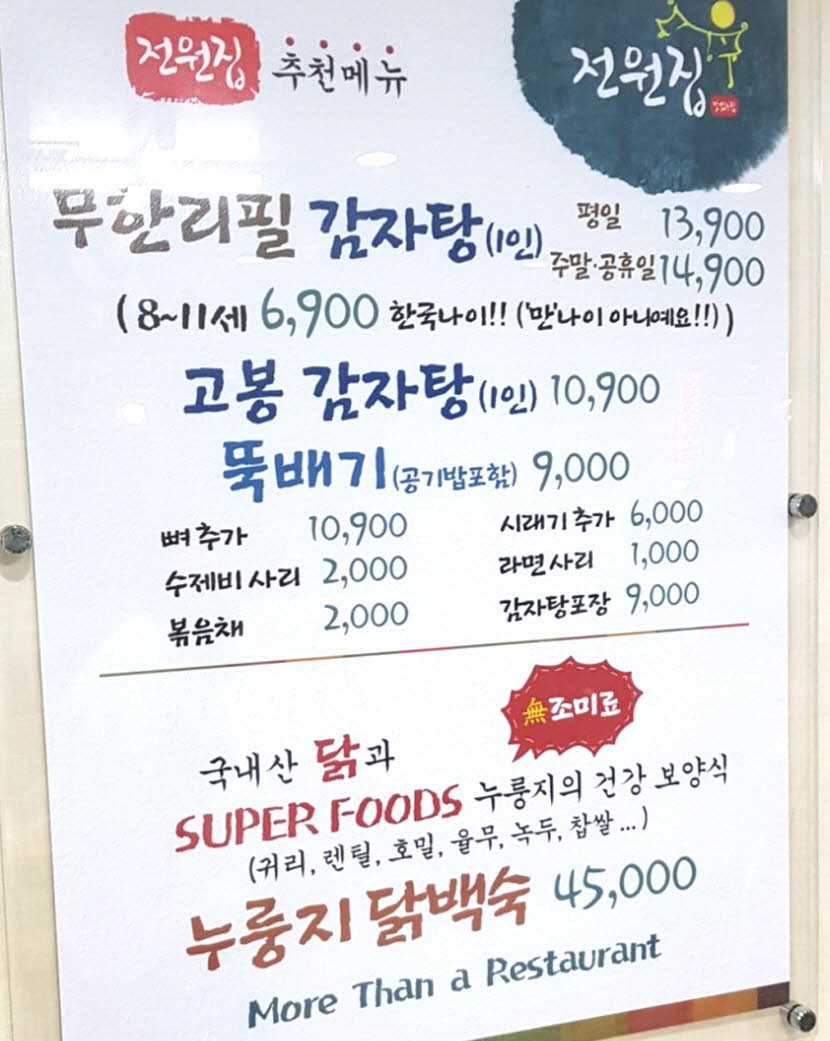 전원집 추천메뉴
전원집
무한리필 감자탕(1인) 평일 13,900
주말·공휴일 14,900
(8~11세 6,900 한국나이!! ('만'나이 아니예요!!))
고봉 감자탕(1인) 10,900
뚝배기(공기밥포함) 9,000
뼈 추가 10,900 시래기 추가 6,000
수제비 사리 2,000 라면 사리 1,000
볶음채 2,000 감자탕포장 9,000
無조미료
국내산 닭과
SUPER FOODS 누룽지의 건강 보양식
(귀리, 렌틸, 호밀, 율무, 녹두, 찹쌀...)
누룽지 닭백숙 45,000
More Than a Restaurant